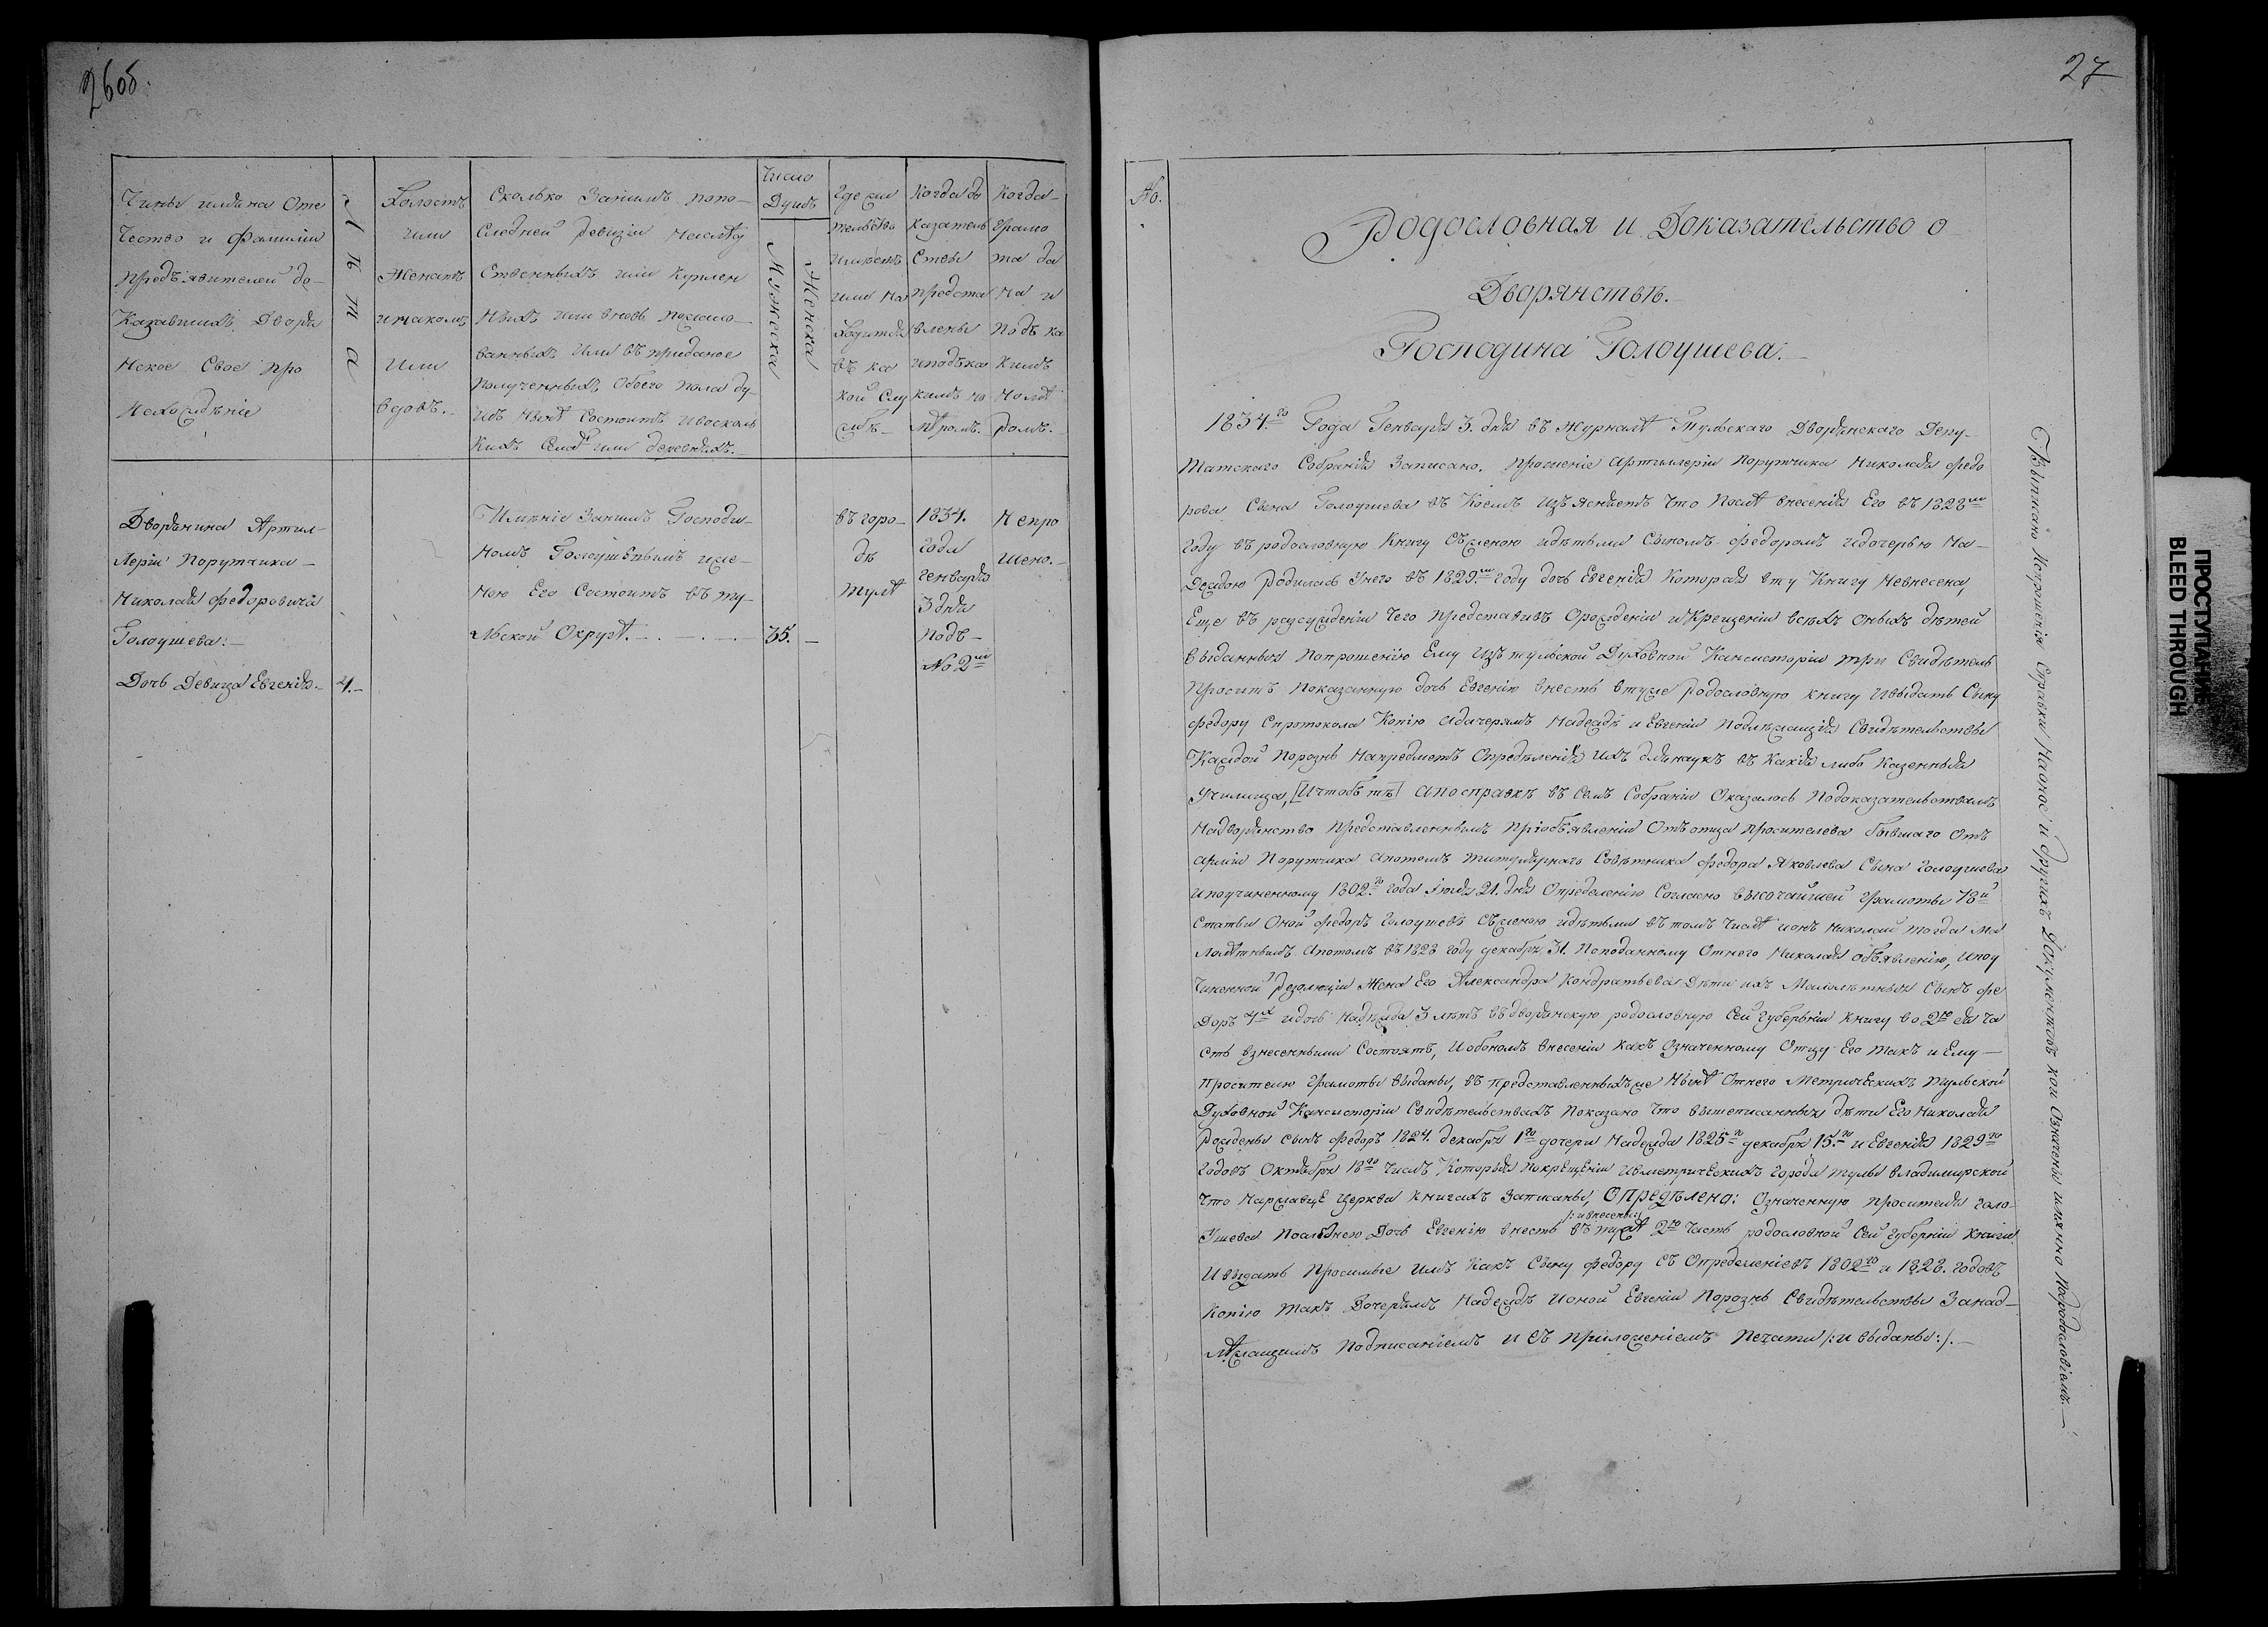 26об.
Чины имяна Оте
чество и Фамилии
предъявителей до-
казавшихъ Дворя
нское Свое про
исхождѣніе
Лѣта
Холостъ
или
Женатъ
и на комъ
или
вдовъ.
Сколько Занимъ попо-
следней ревизіи наслѣд
ственныхъ или куплен
ныхъ или вновь пожало-
ванныхъ или въ приданое
полученныхъ обоего пола ду-
шъ
состоитъ
кихъ Селѣ или деревняхъ.
Число
Душъ
Мужеска
Женска
Где жи
тельство
имѣетъ
или на
ходится
въ ка
кой слу
жбѣ
Когда до
казатель
ствы
предста
влены
иподъка
кимъ но
мѣромъ.
Когда
грамо
та да
на и
подъ ка
кимъ
номѣ
ромъ.
Дворянина Артил-
лерій Порутчика
Николая Федоровича
Голоушева:
Дочь Девица Евгенія. 4.
Имѣніе Занимъ Господи-
номъ Голоушевымъ и же-
ною Его Состоитъ въ ту-
льской Округѣ. 35.
въ горо-
дѣ
тулѣ
1834.
года
генваря
3 дня
Подъ
№ 2м
Непро
шено.
27
№.
Родословная и Доказательство о
Дворянствѣ.
Господина Голоушева.
1834го Года Генваря 3. дня въ журналѣ Тульскаго Дворянскаго Депу-
татскаго Собранія Записано. прошеніе Артиллеріи порутчика Николая федо
рова Сына Голоушева въ Коемъ изъясняетъ что послѣ внесенія Его въ 1828м
году въ родословную Книгу съженою идѣтьми Сыномъ федоромъ идочерью На-
деждою родилась Унего въ 1829м году дочь Евгенія Которая вту Книгу невнесена,
Еще въ разсужденіи чего представивъ Орожденіи икрещеніи всѣхъ оныхъ дѣтей
выданныя попрошенію Ему изъ тульской Духовной Консисторіи три Свидѣтель
проситъ показанную дочь Евгенію внесть втуже родословную книгу ивыдать Сыну
федору Спротокола Копію идочерямъ Надеждѣ и Евгеніи подлѣжащія Свидѣтельствы
Каждой порознь напредметъ Определенія ихъ длянаукъ въ какія либо казенныя
училища, [Ичтобъ тѣ] Апосправкѣ въ семъ Собраніи Оказалось подоказательствамъ
надворянство представленнымъ приобъявленіи Отъ отца просителева бывшаго Отъ
арміи порутчика апотомъ титулярнаго Совѣтника федора Яковлева Сына голоушева
ипоучиненному 1802го года Іюля 21. дня Определенію Согласно высочайшей грамоты 78й
Статьи Оной федоръ Голоушевъ съженою идѣтьми въ томъ числѣ ионъ Николай тогда ма
лолѣтнымъ Апотомъ въ 1828 году декабря 31. поподанному Отнего Николая объявленію, ипоу
чиненной резолюціи жена Его Александра Кондратьева Дѣти ихъ малолѣтныя Сынъ фе
доръ 4х идочь Надѣжда 3 лѣтъ въ дворянскую родословную сей губерніи книгу во 2ю ея ча
сть взнесенными состоятъ, иобономъ внесеніи какъ означенному Отцу Его такъ и Ему
просителю грамоты выданы, въ представленныхъже нынѣ Отнего метрическихъ тульской
Духовной Консисторіи Свидѣтельствахъ показано что вышеписанныя дѣти Его Николая
рождены сынъ федоръ 1824. декабря 1го дочери Надежда 1825го декабря 15.го и Евгенія 1829го
годовъ Октября 18го числъ Которыя покрещеніи ивметрическихъ города тулы владимирской
что Наржавце церкви книгахъ записаны, Определено: Означенную просителя голо
ушева последнею Дочь Евгенію внесть /: и внесена :/ въ туже 2ю часть родословной сей губерніи книги
и выдать просимые имъ какъ Сыну федору съ Определеніевъ 1802го и 1828. годовъ
копію такъ Дочерямъ Надеждѣ ионой Евгеніи порознь Свидѣтельствы Занад-
лѣжащимъ подписаніемъ и съ приложеніемъ печати /: и выданы :/.
Вписано Испрошенія Справки Наоное и другихъ Документовъ кои Означены имянно породословіемъ.
ПРОСТУПАНИЕ
BLEED THROUGH